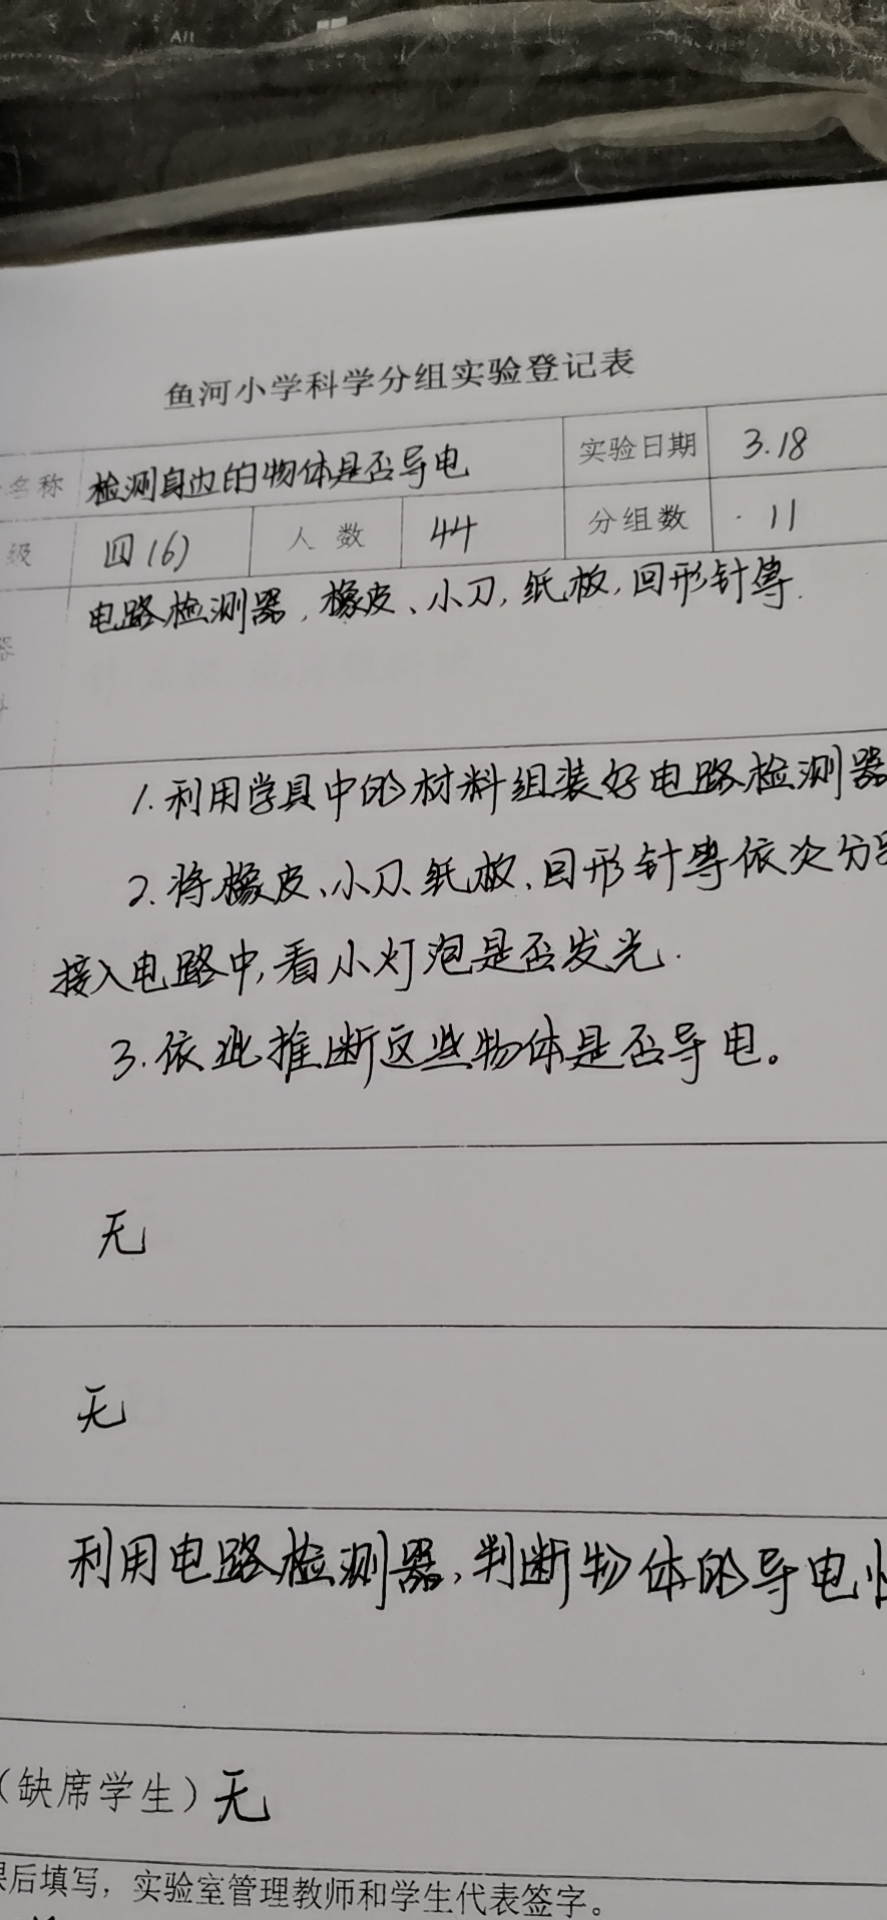 All
鱼河小学科学分组实验登记表
名称 检测身边的物体是否导电 实验日期 3.18
级 四(6) 人数 44 分组数 11
电路检测器,橡皮、小刀,纸板,回形针等.
器
1.利用学具中的材料组装好电路检测器
2.将橡皮、小刀、纸板、回形针等依次分别
接入电路中,看小灯泡是否发光.
3.依此推断这些物体是否导电。
无
无
利用电路检测器,判断物体的导电性
(缺席学生)无
课后填写,实验室管理教师和学生代表签字。